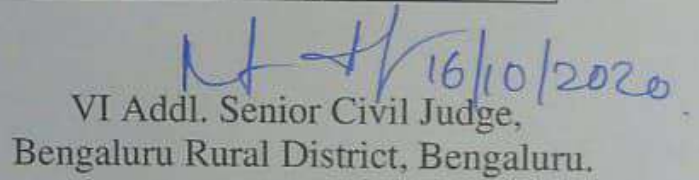 16/10/2020
VI Addl. Senior Civil Judge,
Bengaluru Rural District, Bengaluru.